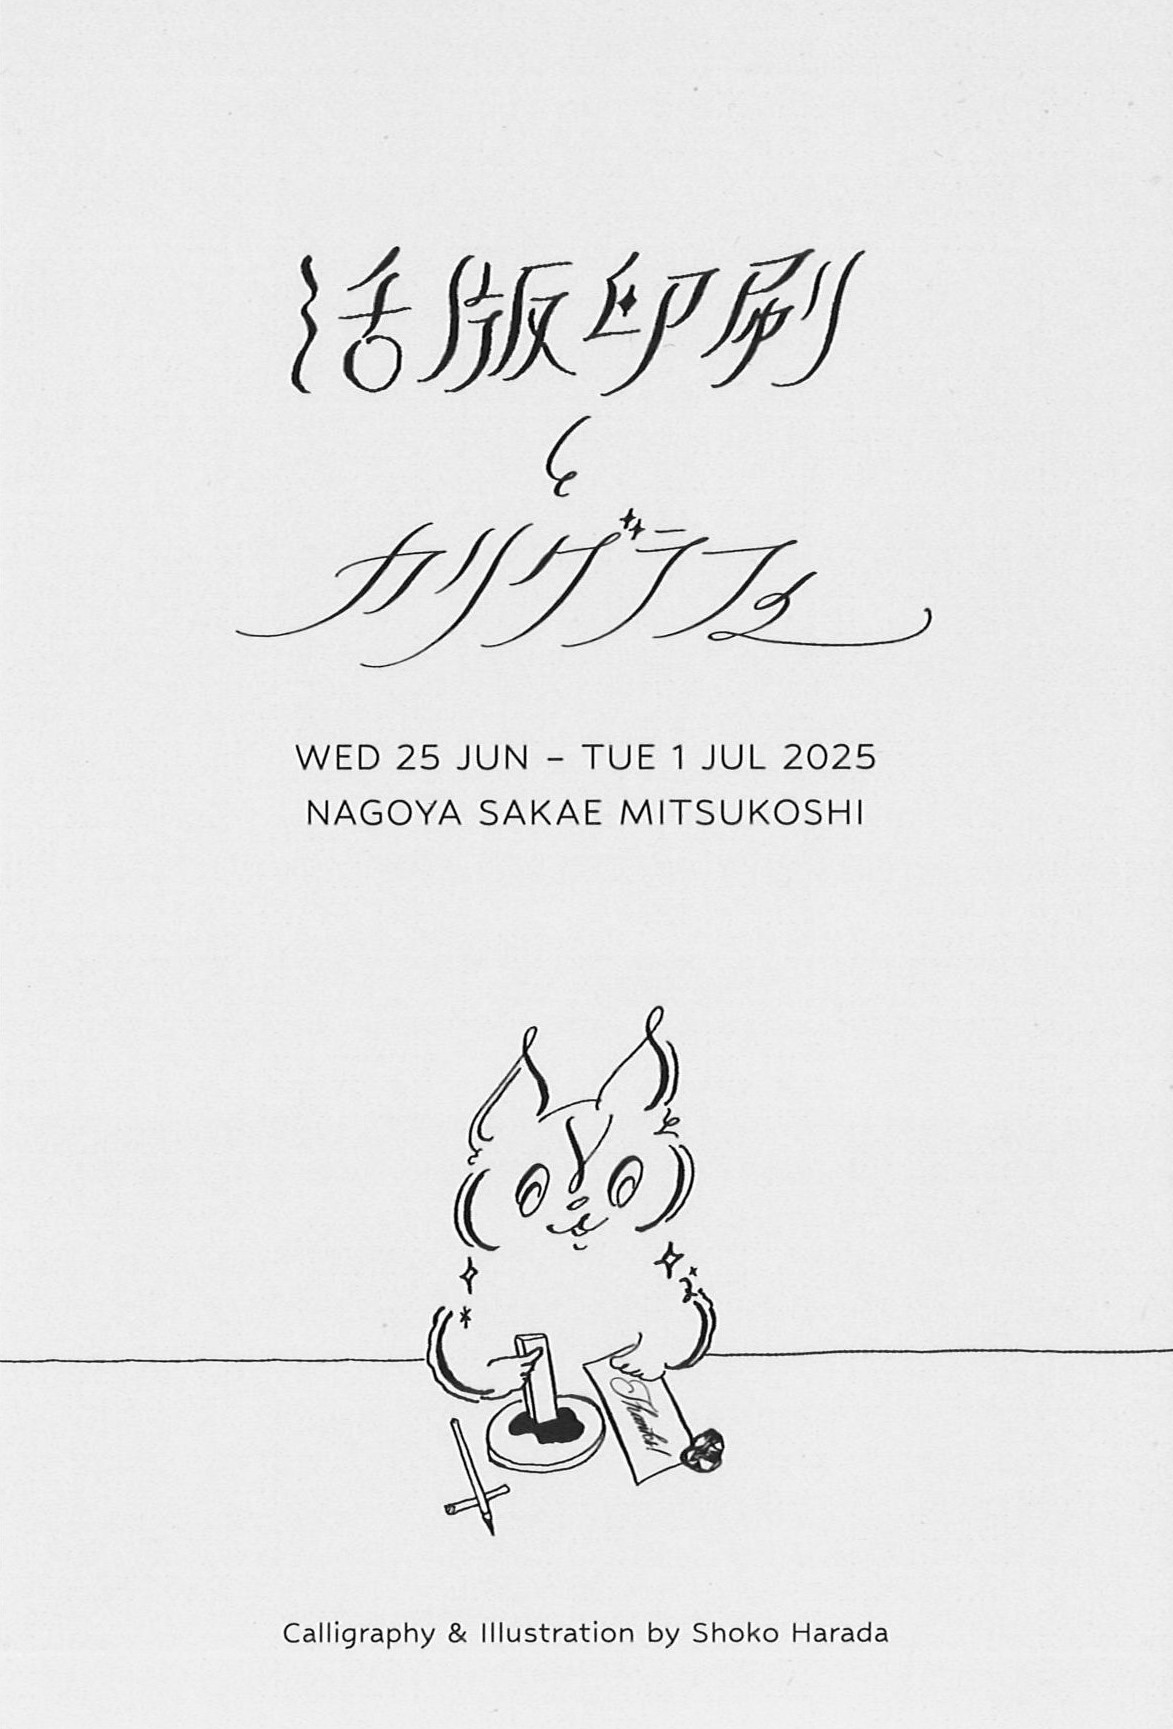 活版印刷
と
カリグラフィ
WED 25 JUN – TUE 1 JUL 2025
NAGOYA SAKAE MITSUKOSHI
Thanks!
Calligraphy & Illustration by Shoko Harada